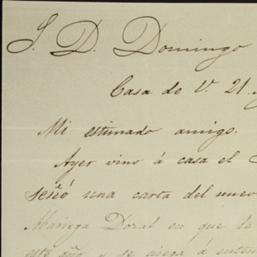 S. D. Domingo
Casa de V. 21
Mi estimado amigo.
Ayer vino á casa el
señó una carta del nuevo
Doral en que le
este año y se niega á